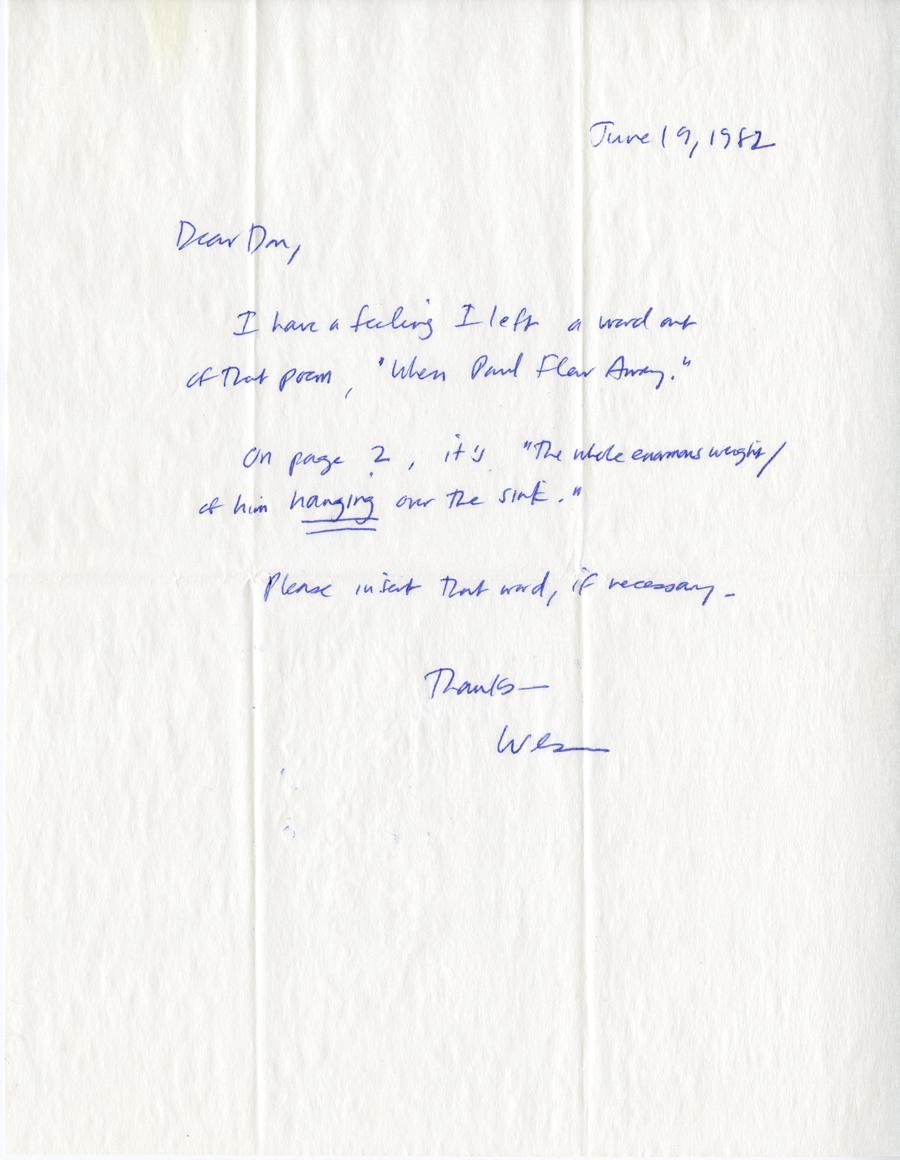 June 19, 1982
Dear Don,
I have a feeling I left a word out
of that poem, "When Paul Flew Away."
On page 2, it's "The whole enormous weight/
of him hanging over the sink."
Please insert that word, if necessary –
Thanks—
Wes